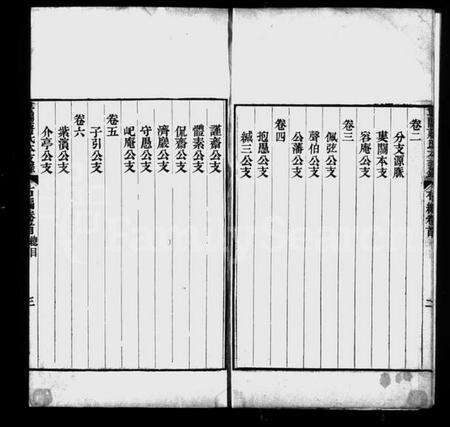 卷二
分支源脈
裏關本支
容庵公支
卷三
佩弦公支
聲伯公支
公藩公支
卷四
抱愚公支
緘三公支
謹齋公支
體素公支
侃齋公支
濟巖公支
守愚公支
屺庵公支
卷五
子引公支
卷六
紫濱公支
介亭公支
卷首
總目
二
三
FamilySearch